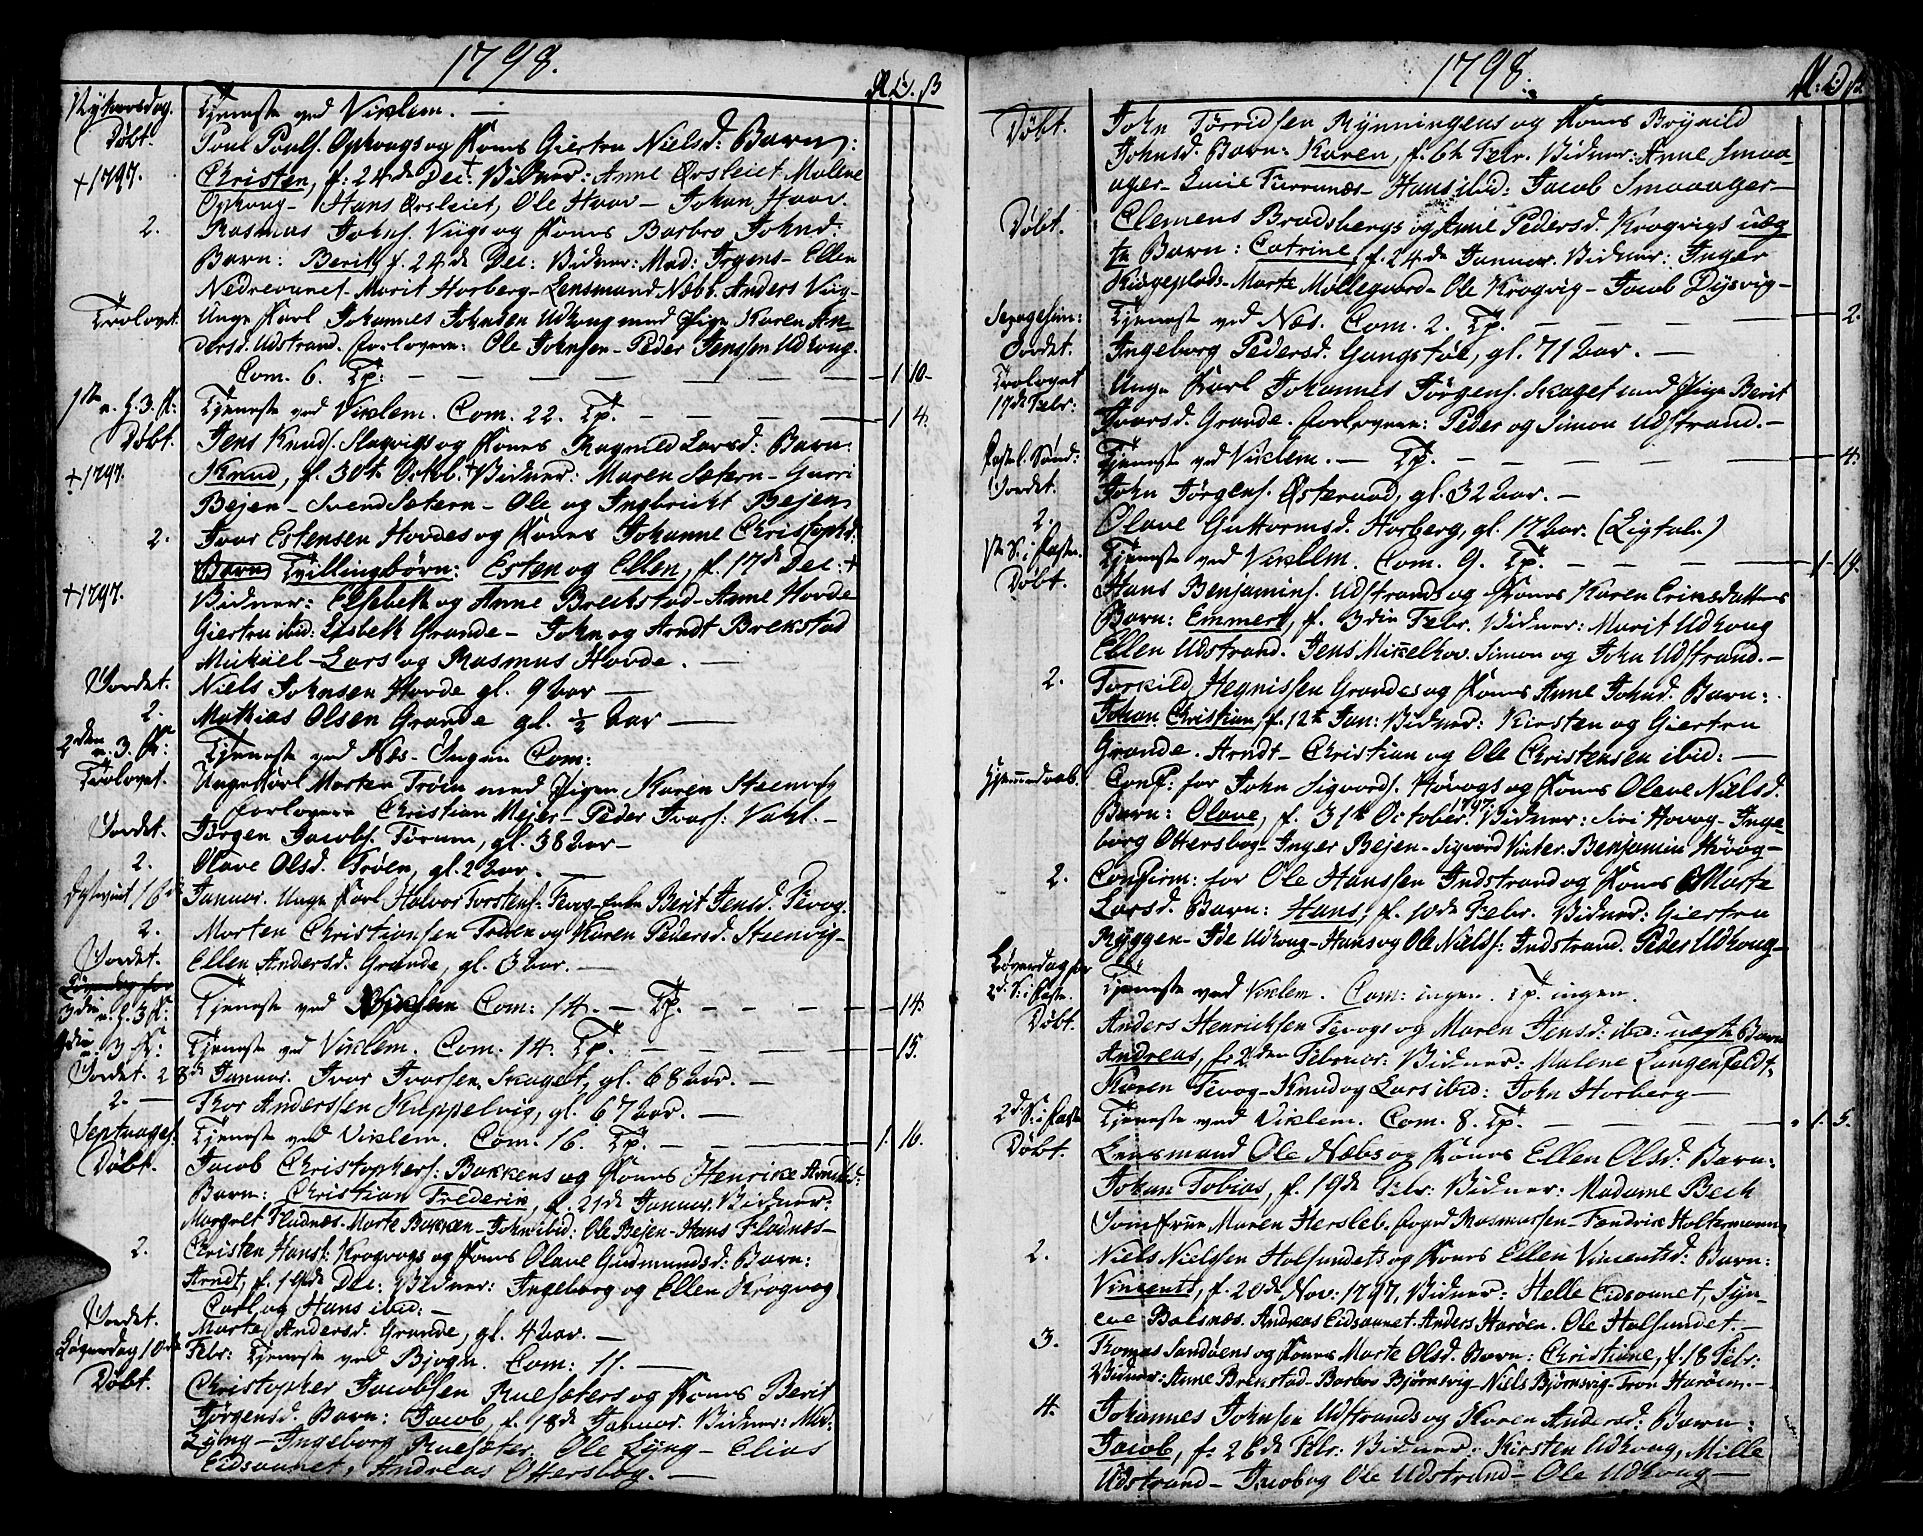 1798.
R. D. B
Nytaarsdag. Tjeneste ved Viklem. —
Døbt. Poul Poulf. Opkougs og Kones Giertru Nielsd: Barn:
+1797. Christen, f: 24de Dec: + Vidner: Anne Ørsleiet Malene
Opkoug — Hans Ørsleiet, Ole Haav — Johan Haav.
2. Rasmus Johnf. Viigs og Kones Barbro Johnd:
Barn: Berit, f. 24de Dec: Vidner: Mad: Irgens — Ellen
Nedrevaunet — Marit Horberg — Lensmand Næbb. Anders Viig —
Trolovet. Unge Karl Johannes Johnsen Udkoug med Pige Karen An-
dersd. Udstrand. Forlovere: Ole Johnsen — Peder Jenssen Udkoug.
Com. 6. Tp: — — — — — 1. 10.
1ste e. h. 3. K: Tjeneste ved Viklem. Com. 22. Tp. — — — 1. 4.
Døbt. Jens Knudf. Slagvigs og Kones Ragnild Larsd: Barn
+1797. Knud, f. 30te Octbl. + Vidner: Maren Sætern — Gurri
Bejen — Svend Sætern — Ole og Ingbricht Bejen
2. Ivar Estensen Hovdes og Kones Johanne Christophd:
Barn Tvillingbørn: Esten og Ellen, f. 17de Dec: +
+1797. Vidner: Elsebeth og Anne Brekstad — Anne Hovde
Giertru ibid: Lisbeth Grande — John og Arndt Brekstad
Michael — Lars og Rasmus Hovde. —
Jordet. Niels Johnsen Hovde gl. 9 aar —
2. Mathias Olsen Grande gl. ½ aar —
2den e. 3. K: Tjeneste ved Næs — Ingen Com:
Trolovet. Unge Karl Morten Trøen med Pigen Karen Steenvig
Forlovere Christian Mejer — Peder Ivarf: Vahl. —
Jordet. Jørgen Jacobf. Tørum, gl. 38 aar —
2. Olave Olsd. Trøen, gl. 2 aar. —
16de Januar. Unge Karl Halvor Torstenf: Tevog — Enke Berit Jensd. Tevog.
2. Morten Christiansen Trøen og Karen Pedersd. Steenvig —
Jordet. Ellen Andersd. Grande, gl. 3 aar. —
Løverdag for
3die e. h. 3 K: Tjeneste ved Viklem Com: 14. — Tp. — — — 14.
4die e. 3 K: Tjeneste ved Viklem. Com. 14. Tp. — — — 15.
Jordet. 28de Januar. Ivar Ivarsen Skaget, gl. 68 aar. —
2. — Thor Anderssen Kuppelvig, gl. 67 aar. —
Septuages. Tjeneste ved Viklem. Com. 16. Tp. — — — 1. 16.
Døbt. Jacob Christopherf: Bakkens og Kones Henrike Arndtsd:
Barn: Christian Frederik, f. 21de Januar. Vidner:
Margret Fladnæs. Marte Bakken — John ibid: Ole Bejen — Hans Fladnæs —
2. Christen Hansf: Krogvogs og Kones Olave Gudmundsd: Barn:
Arndt, f. 19de Dec: Vidner: Ingeborg og Ellen Krogvog
Carl og Hans ibid: —
Jordet. Marte Andersd. Grande, gl. 4 aar. —
Løverdag 10de Febr: Tjeneste ved Bjogn. Com: 11. —
Døbt. Christopher Jacobsen Ruesæters og Kones Berit
Jørgensd. Barn: Jacob, f. 18de Januar. Vidner: Mar.
Lÿng — Ingeborg Ruesæter. Ole Lÿng — Elias
Eidsaunet, Andreas Ottersbog. —
1798.
R: D. B.
Døbt. John Torridsen Rÿnningens og Kones Brÿnild
Johnsd. Barn: Karen, f. 6te Febr. Vidner: Anne Smaa-
ager — Lucie Furrunæs — Hans ibid: Jacob Smaaager —
Døbt. Clemens Bradsbergs og Anne Pedersd. Krogvigs uæg
te Barn: Catrine, f. 24de Januar. Vidner: Inger
Ringeplads — Marte Møllegaard — Ole Krogvig — Jacob Dÿsvig —
Tjeneste ved Næs. Com. 2. Tp. — — — 2.
Jordet. Ingeborg Pedersd. Gangstøe, gl. 71 aar. —
Trolovet Unge Karl Johannes Jørgenf. Skaget med Pige Berit
17de Febr: Ivarsd. Grande. Forlovere: Peder og Simon Udstrand. —
Fastel. Sønd: Tjeneste ved Viklem. — Tp. — — — 4.
Jordet. John Jørgenf. Østeraad, gl. 32 aar. —
2. Olave Guttormsd. Horberg, gl. 17 aar. (Ligtal.)
1ste S: i Faste. Tjeneste ved Viklem. Com. 9. Tp. — — — 1. 19.
Døbt. Hans Benjaminf. Udstrands og Kones Karen Eriksdatters
Barn: Emmert, f. 3die Febr. Vidner: Marit Udkoug
Ellen Udstrand. Jens Mikkelhov. Simon og John Udstrand. —
2. Torkild Hegnissen Grandes og Kones Anne Johnd. Barn:
Johan Christian, f. 12te Jan: Vidner: Kirsten og Giertru
Grande. Arndt — Christian og Ole Christensen ibid: —
Hjemmedaab. Conf: for John Sigvardf. Høvogs og Kones Olave Nielsd.
Barn: Olave, f. 31te October 1797. Vidner: Siri Hovog — Inge-
borg Ottersbog — Inger Bejen — Sigvard Vinker. Benjamin Høvog —
2. Confirm: for Ole Hanssen Indstrand og Kones Marte
Larsd. Barn: Hans, f. 10de Febr. Vidner: Giertru
Rÿggen — Ide Udkoug — Hans og Ole Nielsf: Indstrand. Peder Udkoug —
Løverdag for
2d. S: i Faste. Tjeneste ved Viklem. Com: ingen. Tp. ingen.
Døbt. Anders Henricksen Tevogs og Maren Jensd. ibid: uægte Barn
Andreas, f. 2den Februar: Vidner: Malene Langenfeldt,
Karen Tevog — Knud og Lars ibid: John Horberg —
2d. S: i Faste Tjeneste ved Viklem. Com. 8. Tp. — — — 1. 5.
Døbt. Lensmand Ole Næbs og Kones Ellen Olsd: Barn:
Johan Tobias, f. 19de Febr: Vidner: Madame Bech
Jomfrue Maren Hersleb. Foged Rasmussen — Fændrik Holtermann,
2. Niels Nielsen Holsundets og Kones Ellen Vincentsd: Barn:
Vincents, f. 20de Nov: 1797, Vidner: Helle Eidsaunet, Sÿn-
eve Balsnæs. Andreas Eidsaunet. Anders Harøen. Ole Holsundet. —
3. Thomas Sandøens og Kones Marte Olsd. Barn: Christiane, f. 18 Febr:
Vidner: Anne Brekstad — Barbro Bjørnsvig — Niels Bjørnsvig — Tron Harøen. —
4. Johannes Johnsen Udstrands og Karen Andersd: Barn:
Jacob, f. 26de Febr: Vidner: Kirsten Udkoug, Mille
Udstrand — Jacob og Ole Udstrand — Ole Udkoug —